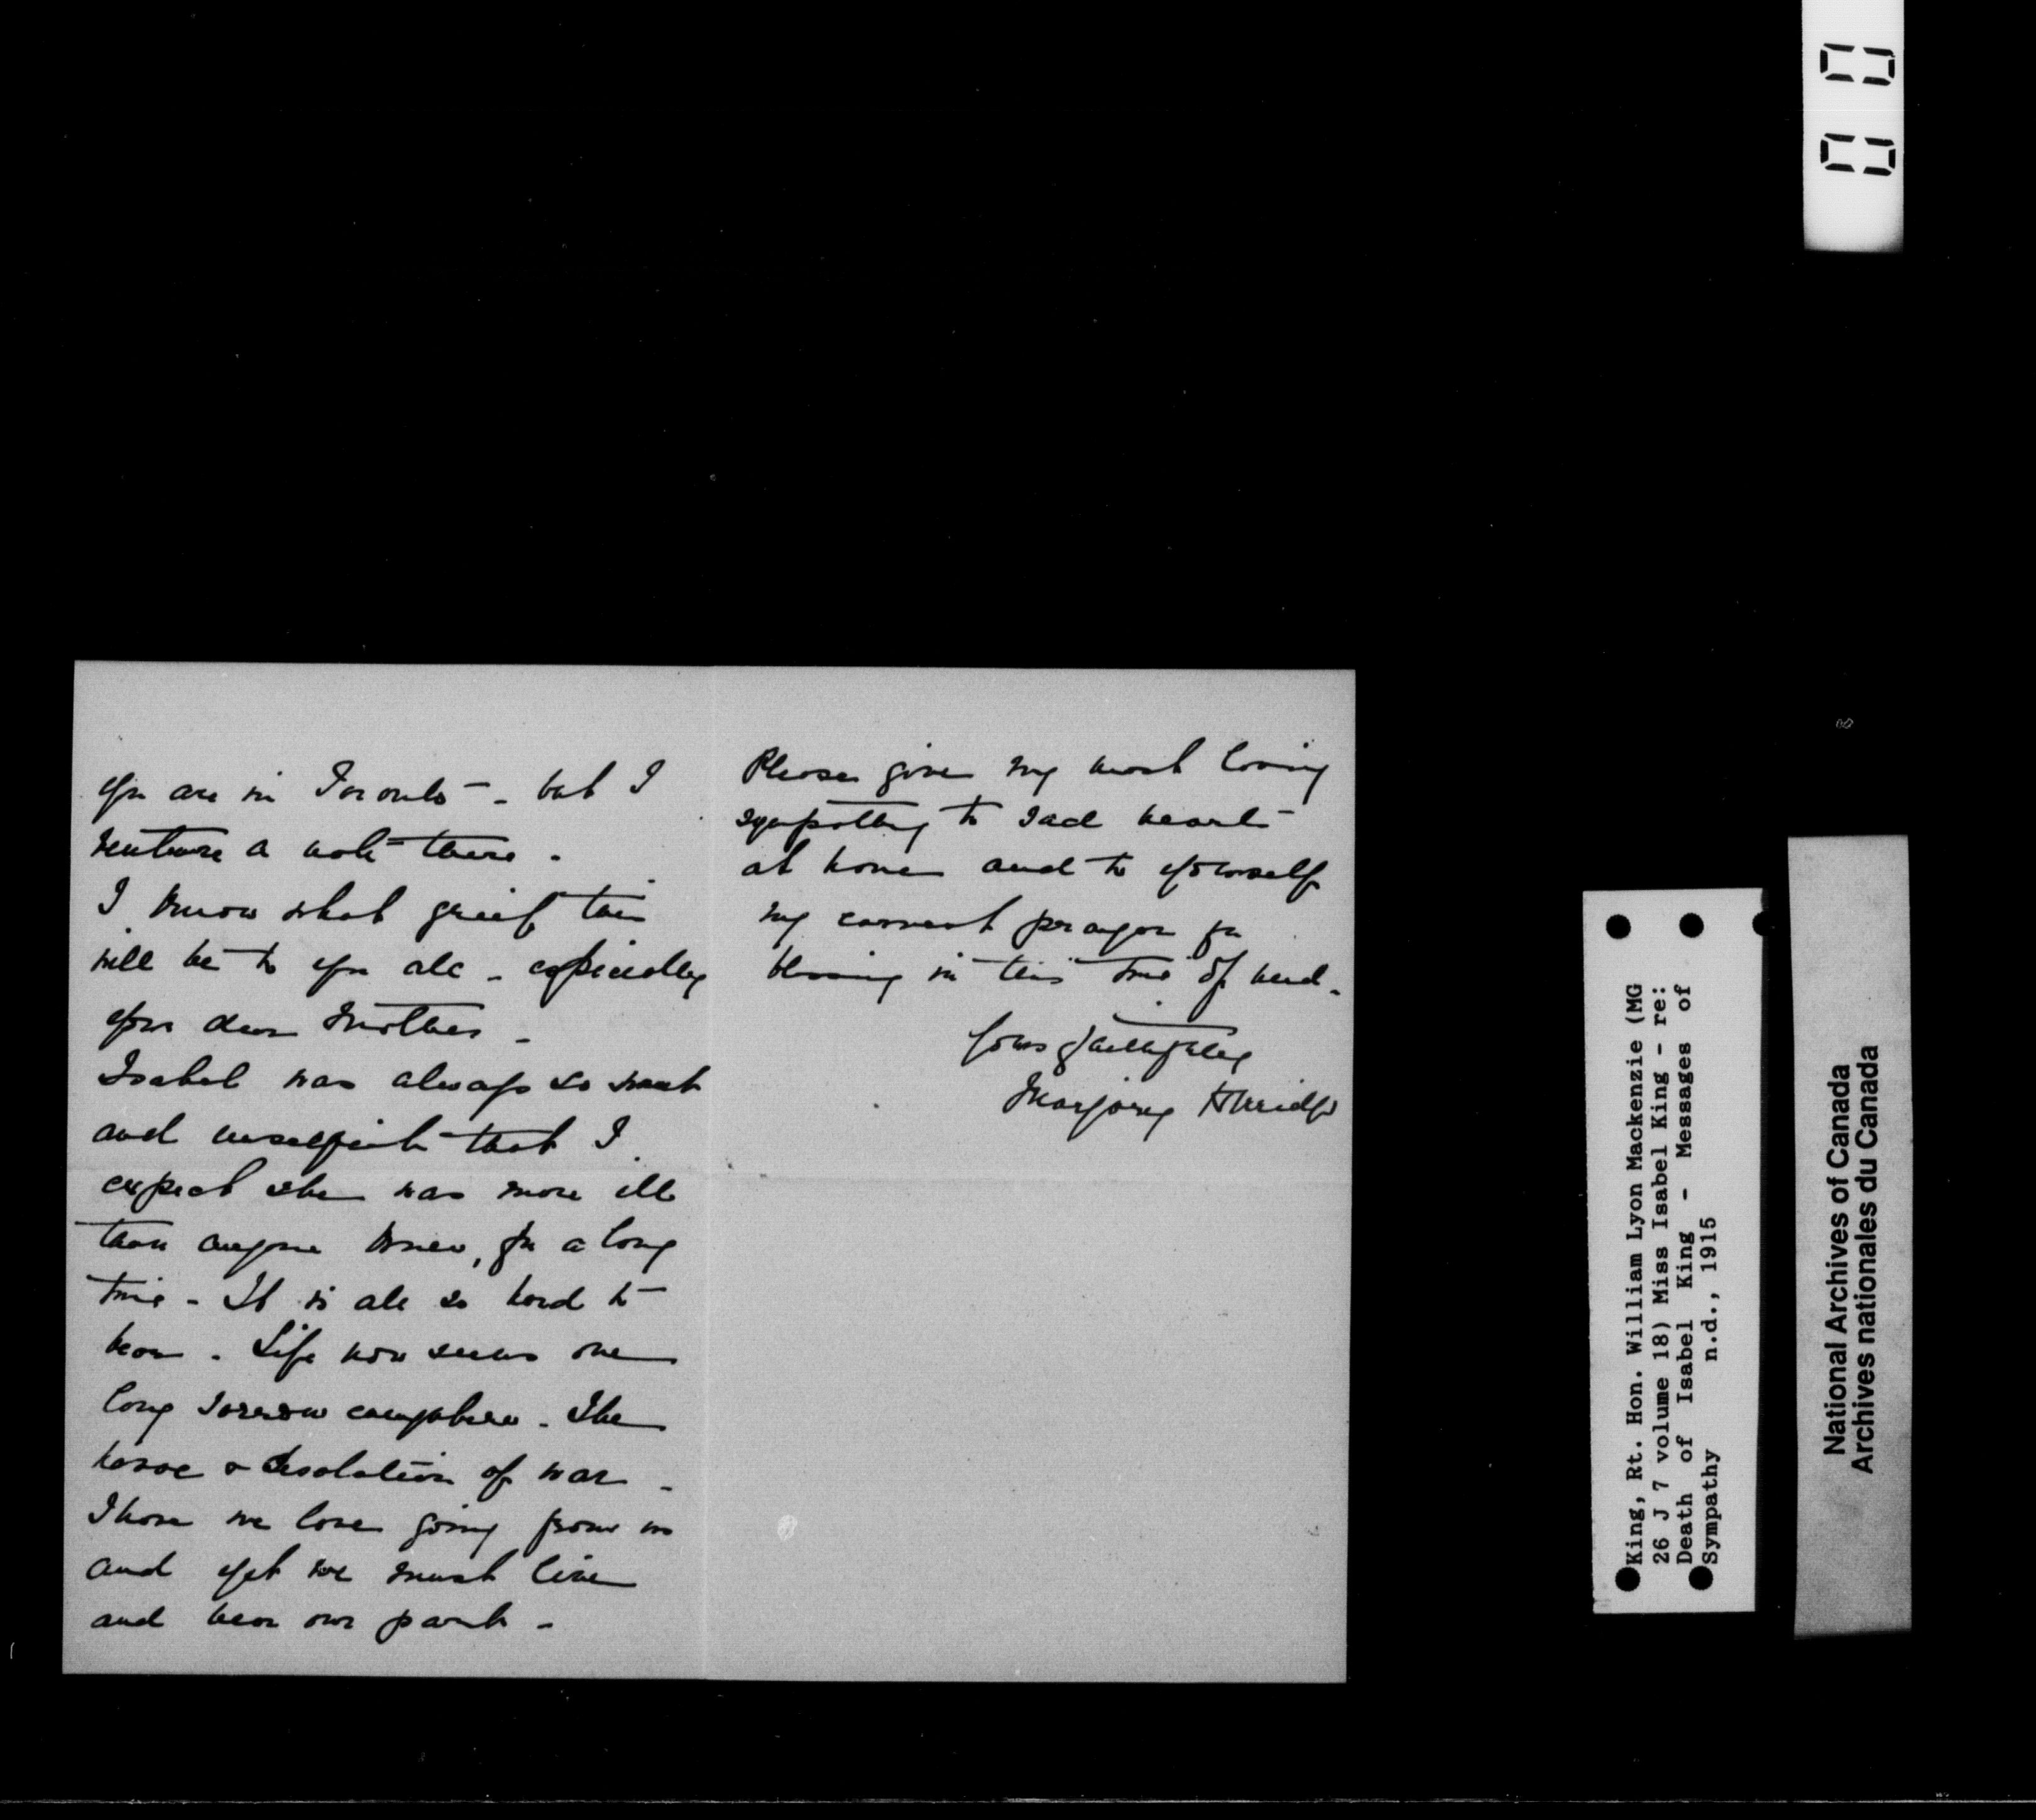 you are in Toronto - but I
venture a note there.
I know what grief this
will be to you all - especially
your dear Mother -
Isabel was always so sweet
and unselfish that I
expect she was more ill
than anyone knew, for a long
time - It is all so hard to
bear. Life now seems one
long sorrow everywhere. The
havoc & desolation of war -
Those we love going from us
and yet we must live
and bear our part -
Please give my most loving
sympathy to sad hearts
at home and to yourself
my earnest prayer for
blessing in this time of need.
Yours faithfully
Marjory Herridge
King, Rt. Hon. William Lyon Mackenzie (MG
26 J 7 volume 18) Miss Isabel King - re:
Death of Isabel King - Messages of
Sympathy n.d., 1915
National Archives of Canada
Archives nationales du Canada